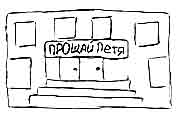 ПРОЩАЙ Петя